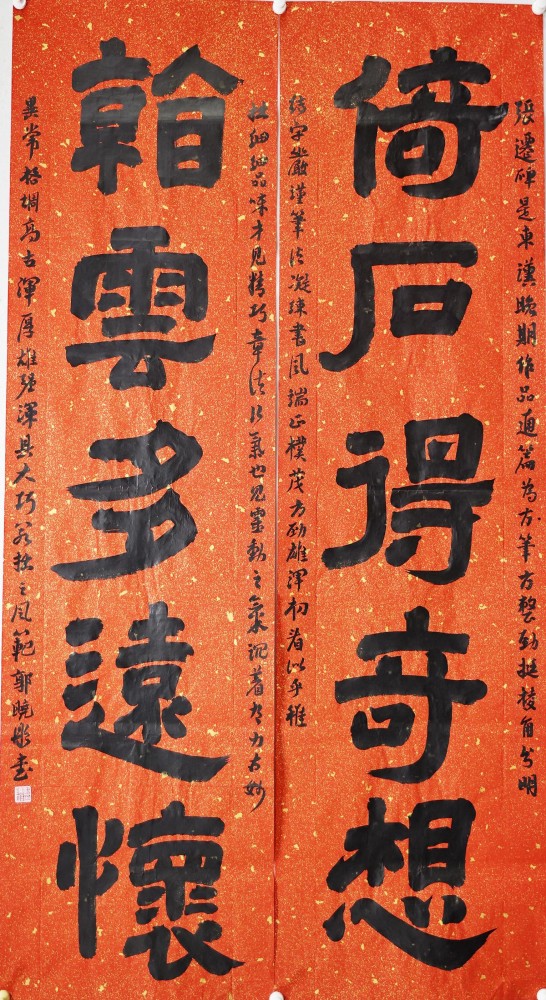 張遷碑是東漢晚期作品通篇為方筆方整勁挺棱角分明
倚石得奇想
結字嚴謹筆法凝練書風端正樸茂方勁雄渾初看似乎稚
拙細細品味才見精巧章法行氣也見靈動之氣沉着有力古妙
𥍋雲多遠懷
異常格調高古渾厚雄強深具大巧若拙之風範郭曉書